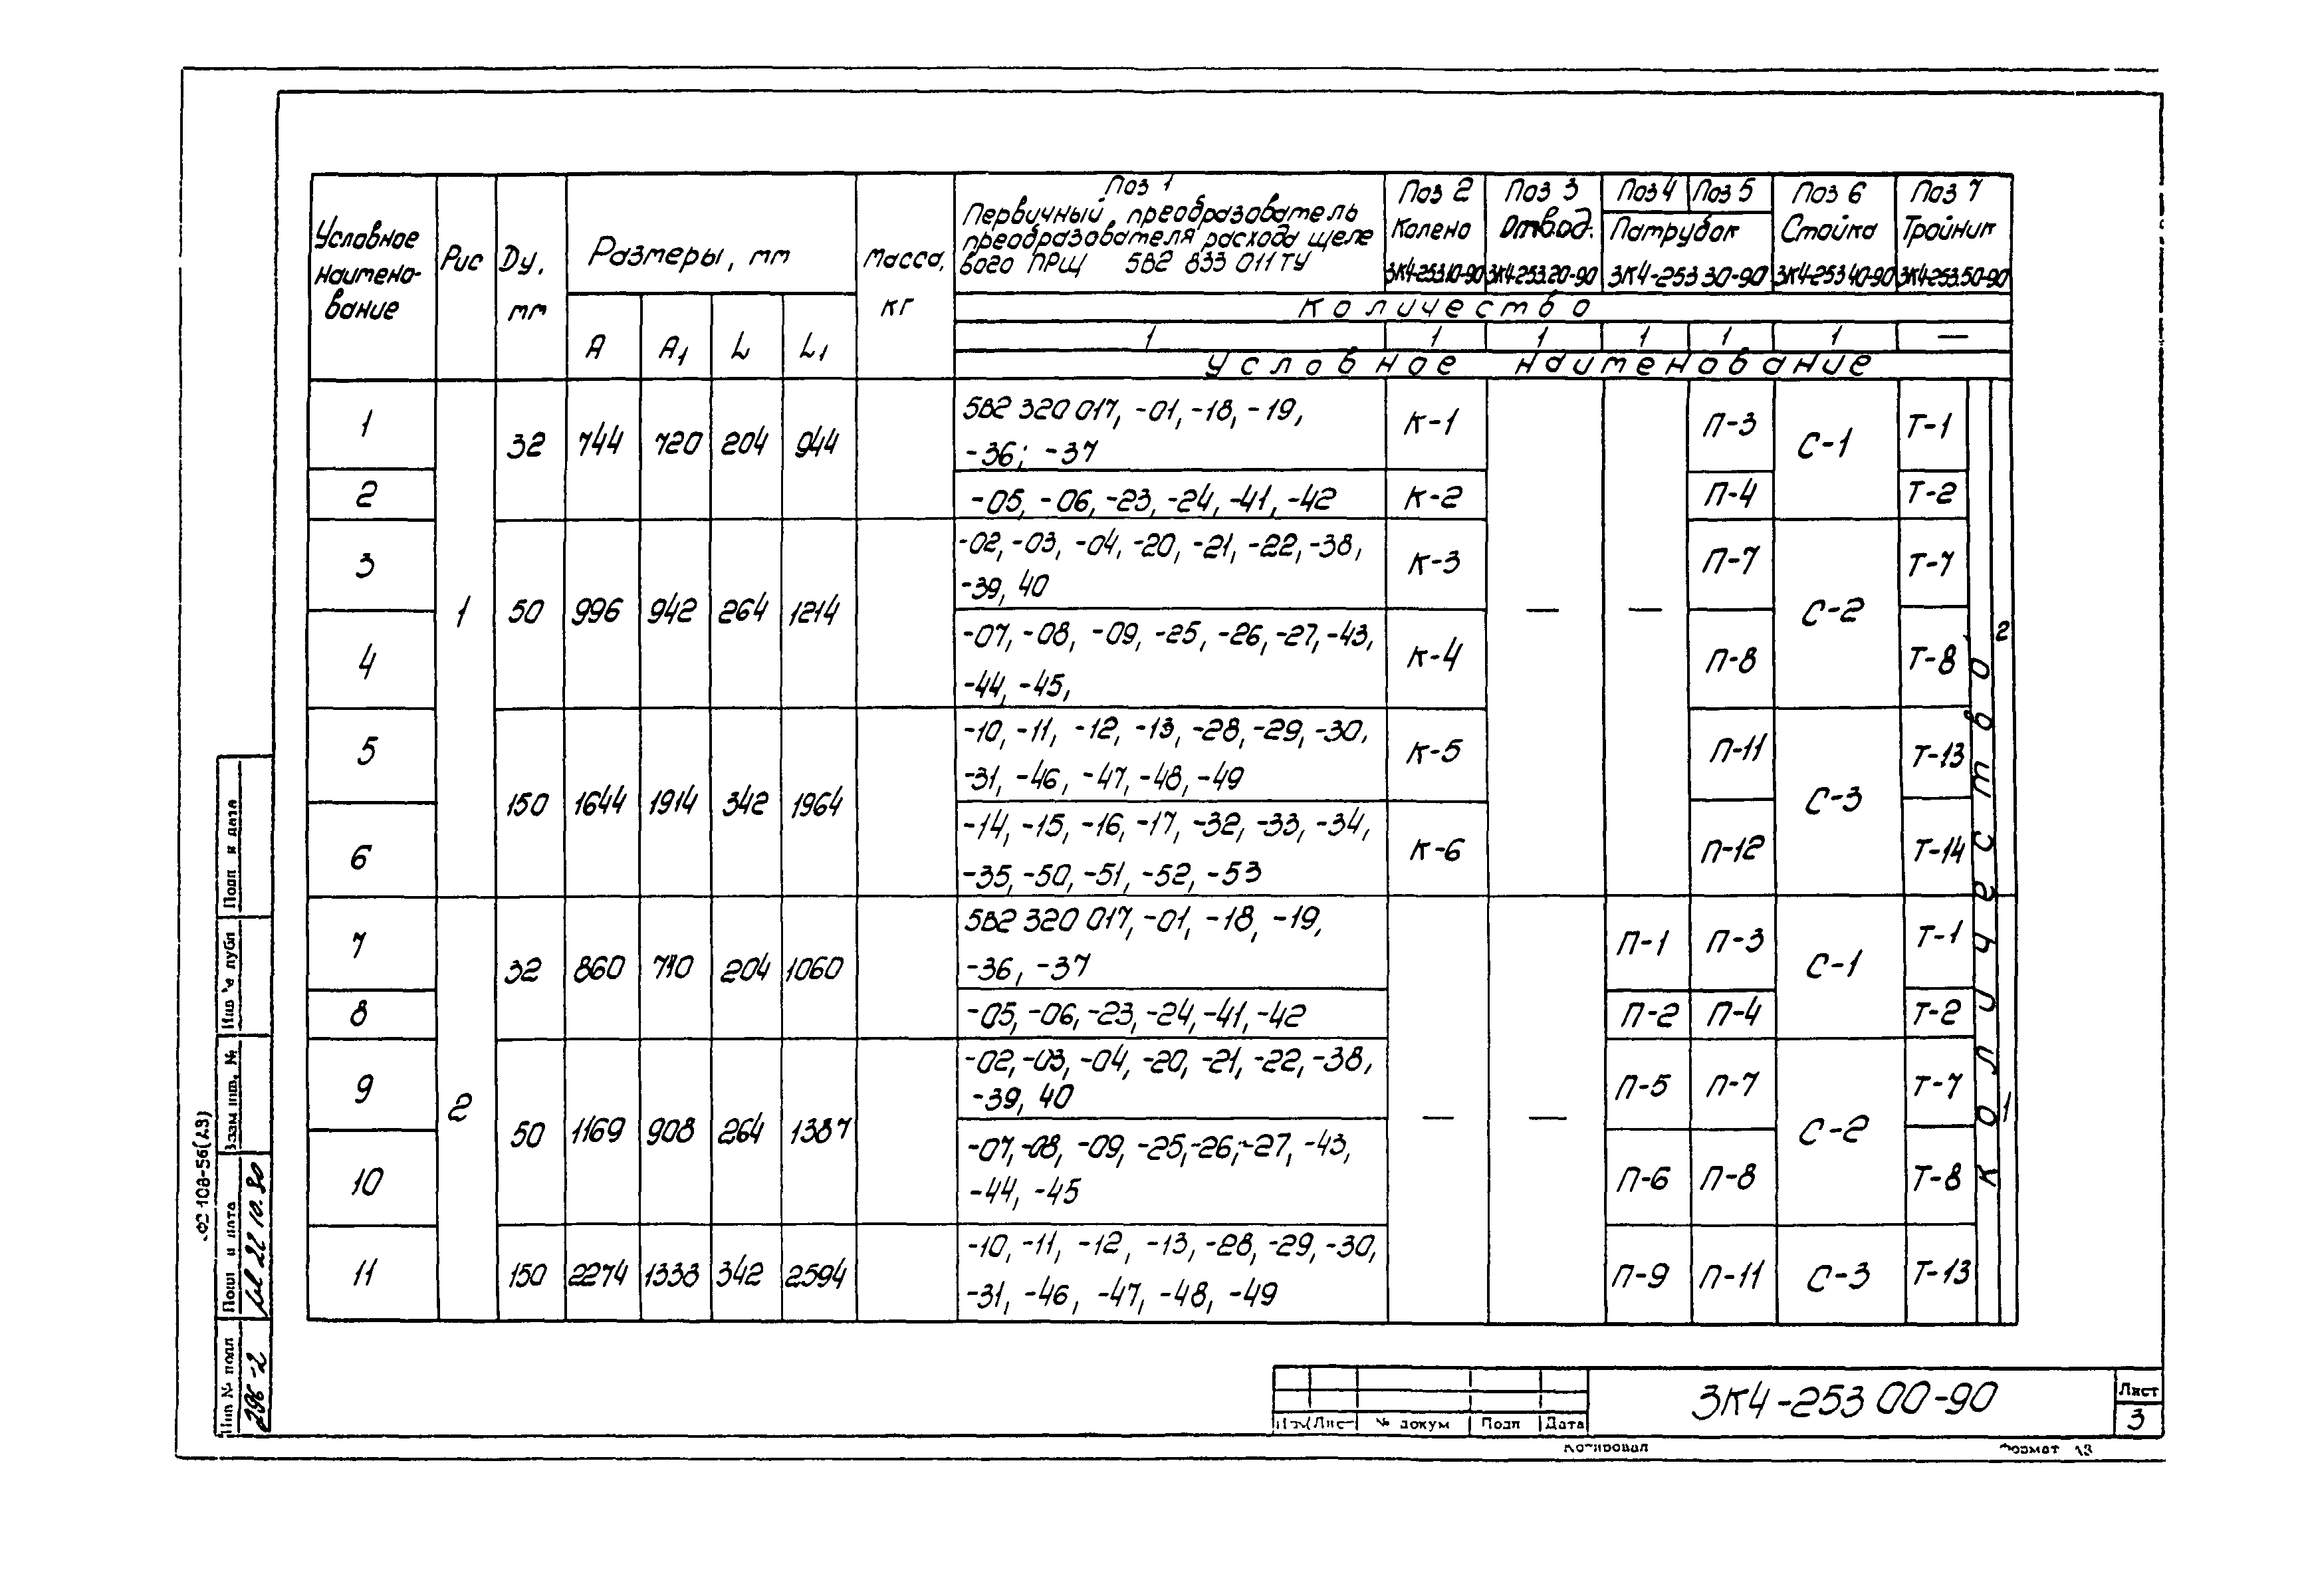 Условное наимено-вание | Рис | Ду, мм | Размеры, мм | Масса, кг | Поз 1 Первичный преобразователь преобразователя расхода щеле вого ПРЩ 5В2 833 011 ТУ | Поз 2 Колено ЗК4-253.10-90 | Поз 3 Отвод. ЗК4-253.20-90 | Поз 4 | Поз 5 Патрубок ЗК4-253 30-90 | Поз 6 Стойка ЗК4-253 40-90 | Поз 7 Тройник ЗК4-253.50-90
А | А1 | L | L1
Количество
1 | 1 | 1 | 1 | 1 | 1 | —
Условное наименование
1 | 1 | 32 | 744 | 720 | 204 | 944 | 5В2 320 017, -01, -18, -19, -36; -37 | К-1 | — | — | П-3 | С-1 | Т-1
2 | -05, -06, -23, -24, -41, -42 | К-2 | П-4 | Т-2
3 | 50 | 996 | 942 | 264 | 1214 | -02, -03, -04, -20, -21, -22, -38, -39, 40 | К-3 | П-7 | С-2 | Т-7
4 | -07, -08, -09, -25, -26, -27, -43, -44, -45, | К-4 | П-8 | Т-8
5 | 150 | 1644 | 1914 | 342 | 1964 | -10, -11, -12, -13, -28, -29, -30, -31, -46, -47, -48, -49 | К-5 | П-11 | С-3 | Т-13
6 | -14, -15, -16, -17, -32, -33, -34, -35, -50, -51, -52, -53 | К-6 | П-12 | Т-14
7 | 2 | 32 | 860 | 204 | 1060 | 5В2 320 017, -01, -18, -19, -36, -37 | — | — | П-1 | П-3 | С-1 | Т-1
8 | -05, -06, -23, -24, -41, -42 | П-2 | П-4 | Т-2
9 | 50 | 1169 | 908 | 264 | 1387 | -02, -03, -04, -20, -21, -22, -38, -39, 40 | П-5 | П-7 | С-2 | Т-7
10 | -07, -08, -09, -25, -26, -27, -43, -44, -45 | П-6 | П-8 | Т-8
11 | 150 | 2274 | 1338 | 342 | 2594 | -10, -11, -12, -13, -28, -29, -30, -31, -46, -47, -48, -49 | П-9 | П-11 | С-3 | Т-13
Кол на рис общ
2
1
Подп и дата
Инв № дубл
Взам инв. №
Подп и дата
22 10.80
Инв № подл
296-2
108-56(А3)
Изм Лист № докум Подп Дата
ЗК4-253 00-90
Лист
3
Копировал
Формат А3